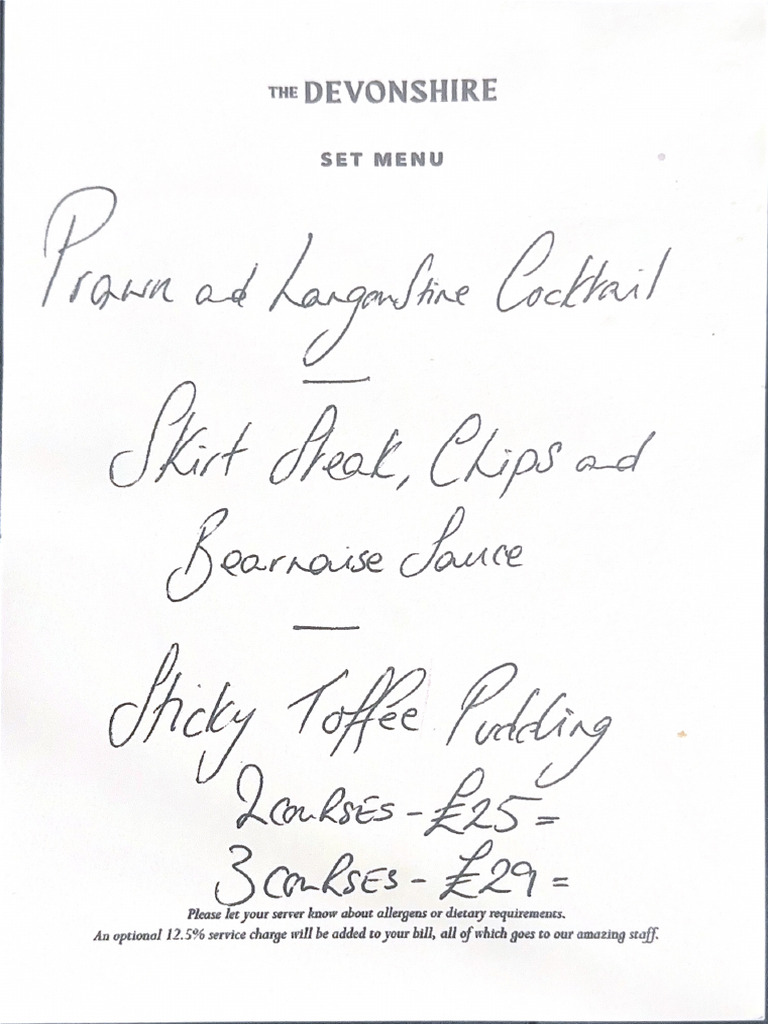 THE DEVONSHIRE
SET MENU
Prawn and Langoustine Cocktail
Skirt Steak, Chips and
Bearnaise Sauce
Sticky Toffee Pudding
2 COURSES - £25=
3 COURSES - £29=
Please let your server know about allergens or dietary requirements.
An optional 12.5% service charge will be added to your bill, all of which goes to our amazing staff.